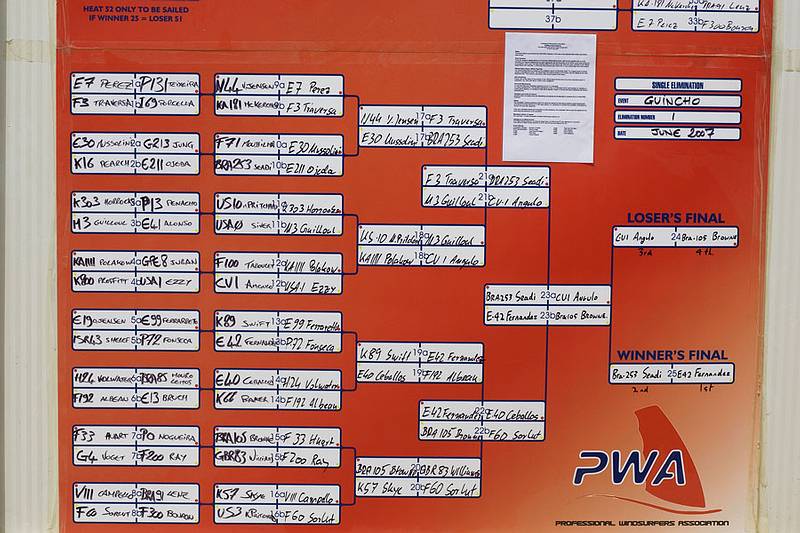 HEAT 52 ONLY TO BE SAILED
IF WINNER 25 = LOSER 51
37b
33b
E7 PEREZ F300 BOURON
SINGLE ELIMINATION
EVENT GUINCHO
ELIMINATION NUMBER 1
DATE JUNE 2007
E7 PEREZ P131 TEIXEIRA
F3 TRAVERSA
E30 GR13 JUNG
K16 PEARCH 2b E211 OJEDA
K303 P13 PENACHO
M3 GUILLOUL 3b E41 ALONSO
KA1111 POLAKOW 4a GPE8 JURAN
K800 PROFFITT 4b USA1 EZZY
E19 JENSEN 5a E99 FERRARETE
ISR43 5b P72 FONSECA
H24 VOLWATER 6a BRA83 MAURO
F192 ALBEAU 6b E13 BRUCH
F33 HUART 7a P0 NOGUEIRA
G4 VOGET 7b F200 RAY
V111 CAMPELLO 8a BRA91 LENZ
F60 SORLUT 8b F300 BOURON
N44 V.JENSEN 9a E7 Perez
KA181 McKERCHER 9b F3 Traversa
F71 10a E30 Mussolini
BRA253 SEADI 10b E211 Ojeda
US10 PRITCHARD 11a K303 Horrocks
USA0 SIVER 11b M3 Guilloul
F100 12a KA1111 Polakow
CV1 ANGULO 12b USA1 Ezzy
K89 SWIFT 13a E99 Ferrarete
E42 FERNANDEZ 13b P72 Fonseca
E40 CEBALLOS 14a H24 Volwater
K66 14b F192 Albeau
BRA105 BROWNE 15a F33 Huart
GBR83 15b F200 Ray
K57 SKYE 16a V111 Campello
US3 K.PRITCHARD 16b F60 Sorlut
N44 V. Jensen 17a F3 Traversa
E30 Mussolini 17b BRA253 Seadi
US10 K.Pritchard 18a M3 Guilloul
KA1111 Polakow 18b CV1 Angulo
K89 Swift 19a E42 Fernandez
E40 Ceballos 19b F192 Albeau
BRA105 Browne 20a GBR83 Williams
K57 Skye 20b F60 Sorlut
F3 Traversa 21a BRA253 Seadi
M3 Guilloul 21b CV1 Angulo
E42 Fernandez 22a E40 Ceballos
BRA105 Browne 22b F60 Sorlut
BRA253 Seadi 23a CV1 Angulo
E-42 Fernandez 23b Bra105 Browne
LOSER'S FINAL
CV1 Angulo 24 Bra-105 Browne
3rd 4th
WINNER'S FINAL
Bra-253 Seadi 25 E42 Fernandez
2nd 1st
PWA
PROFESSIONAL WINDSURFERS ASSOCIATION